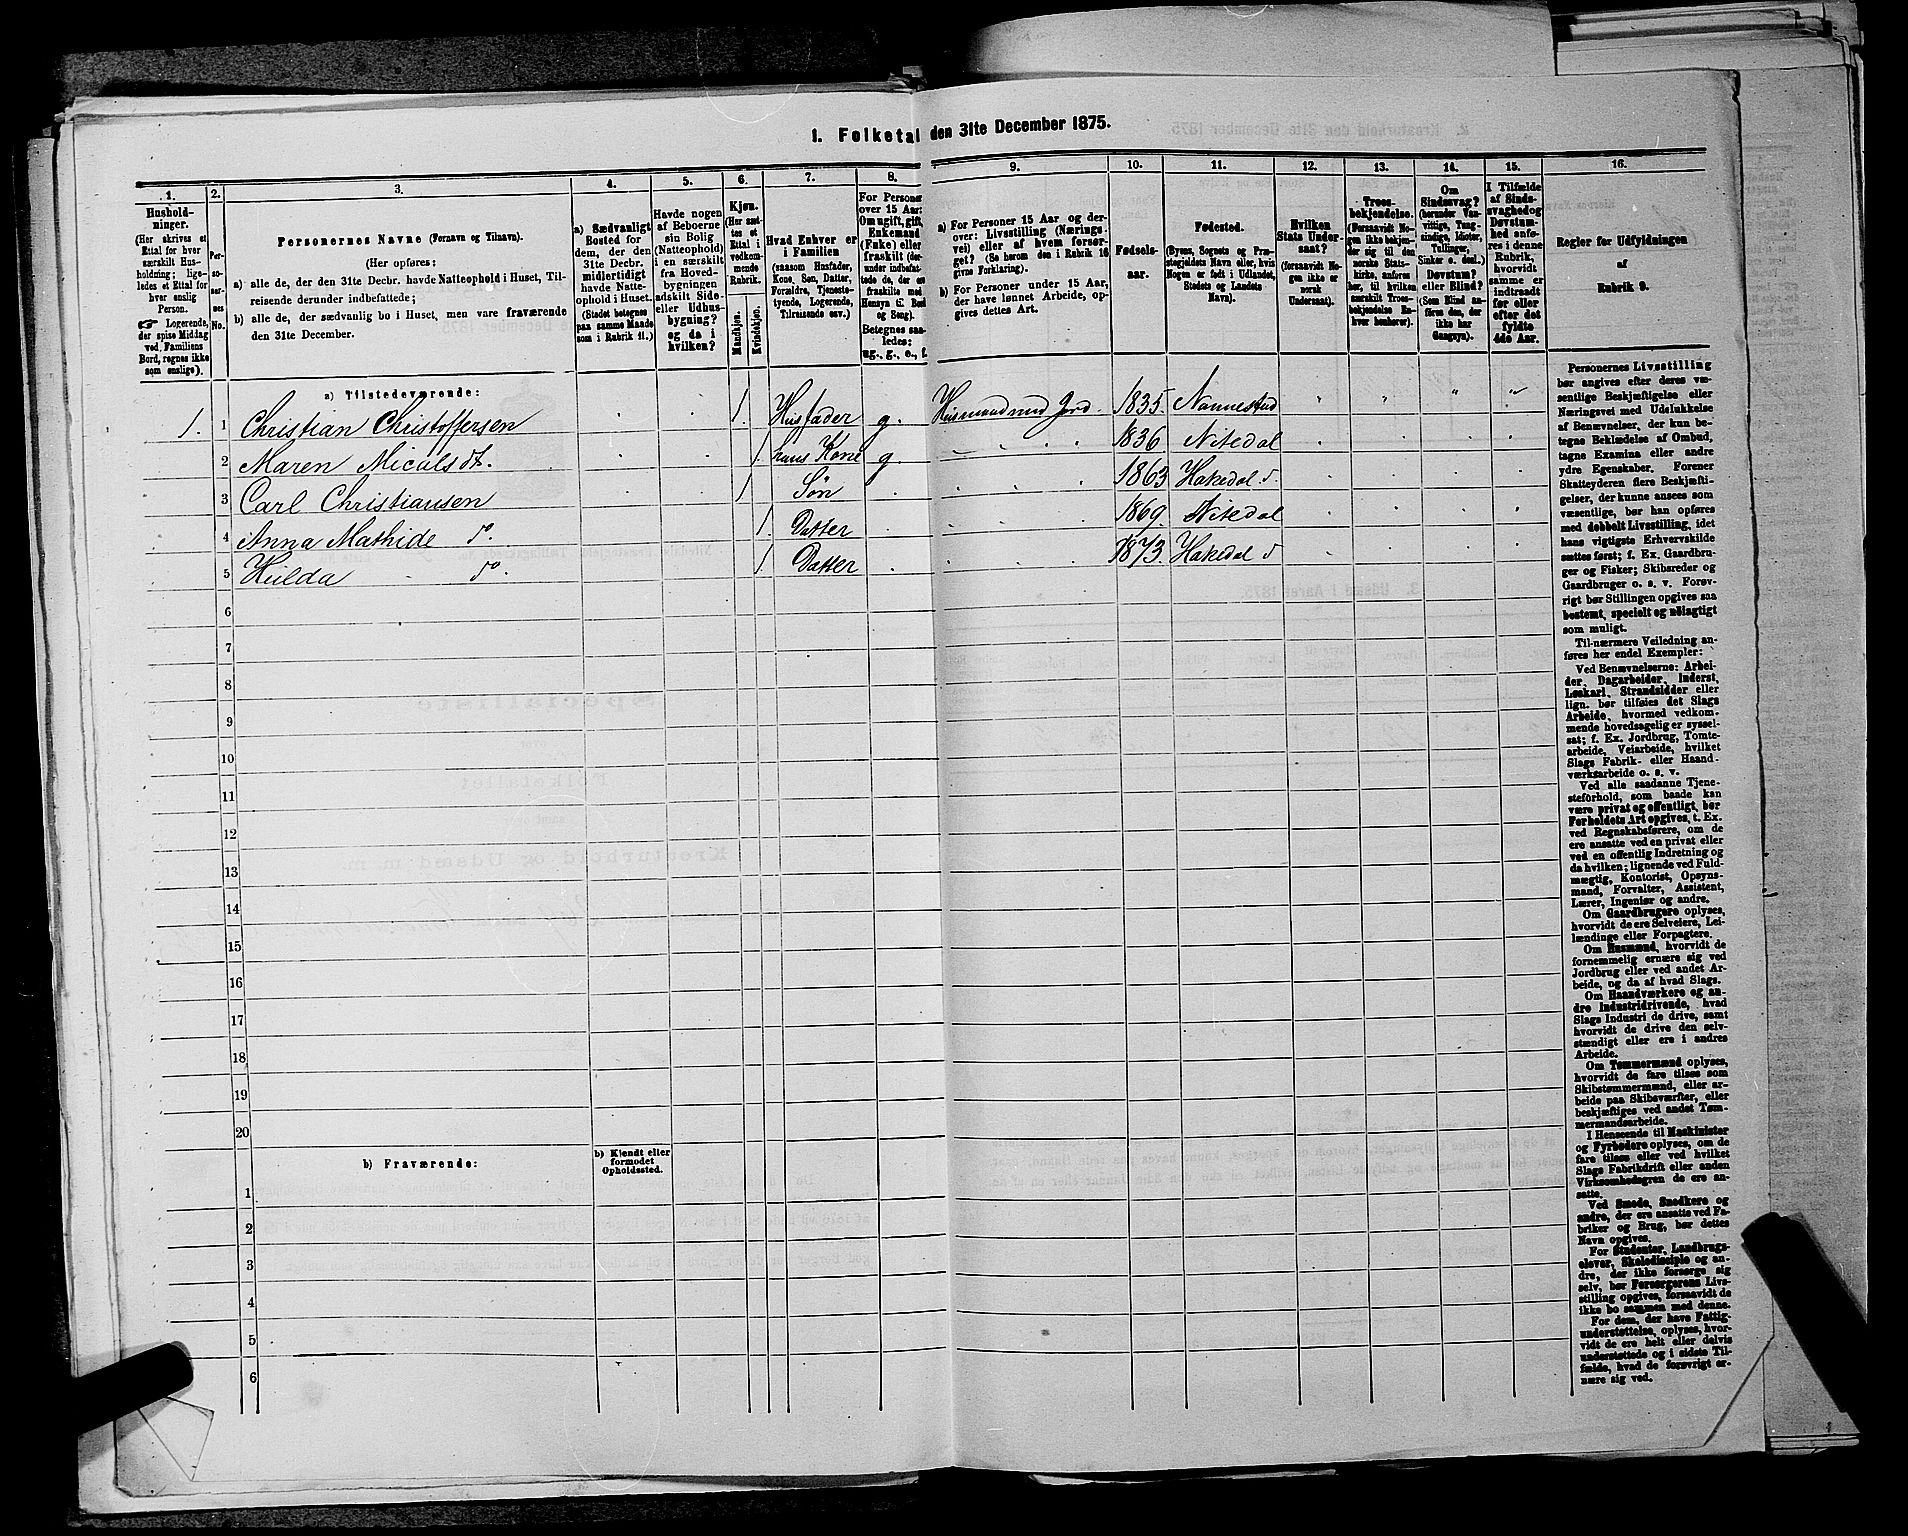 1. Folketal den 31te December 1875.
1. 2. 3. 4. 5. 6. 7. 8. 9. 10. 11. 12. 13. 14. 15. 16.
Hushold-
ninger.
(Her skrives et
Ettal for hver
særskilt Hus-
holdning; lige-
ledes et Ettal for
hver enslig
Person.
☞ Logerende,
der spise Middag
ved Familiens
Bord, regnes ikke
som enslige).
Per-
so-
ner-
nes
No.
Personernes Navne (Fornavn og Tilnavn).
(Her opføres:
a) alle de, der den 31te Decbr. havde Natteophold i Huset, Til-
reisende derunder indbefattede;
b) alle de, der sædvanlig bo i Huset, men vare fraværende
den 31te December.
a) Sædvanligt
Bosted for
dem, der den
31te Decbr.
midlertidigt
havde Natte-
ophold i Huset.
(Stedet betegnes
paa samme Maade
som i Rubrik 11.)
Havde nogen
af Beboerne
sin Bolig
(Natteophold)
i en særskilt
fra Hoved-
bygningen
adskilt Side-
eller Udhus-
bygning?
og da i
hvilken?
Kjøn.
(Her sæt-
tes et
Ettal i
vedkom-
mende
Rubrik.
Mandkjøn.
Kvindekjøn.
Hvad Enhver er
i Familien
(saasom Husfader,
Kone, Søn, Datter,
Forældre, Tjeneste-
tyende, Logerende,
Tilreisende osv.)
For Personer
over 15 Aar:
Om ugift, gift,
Enkemand
(Enke) eller
fraskilt (der-
under indbefat-
tede de, der ere
fraskilte med
Hensyn til Bord
og Seng).
Betegnes saa-
ledes:
ug., g., e., f.
a) For Personer 15 Aar og der-
over: Livsstilling (Nærings-
vei) eller af hvem forsør-
get? (Se herom den i Rubrik 16
givne Forklaring).
b) For Personer under 15 Aar,
der have lønnet Arbeide, op-
gives dettes Art.
Fødsels-
aar.
Fødested.
(Byens, Sognets og Præ-
stegjeldets Navn eller, hvis
Nogen er født i Udlandet,
Stedets og Landets
Navn).
Hvilken
Stats Under-
saat?
(forsaavidt No-
gen ikke er
norsk
Undersaat).
Troes-
bekjendelse.
(Forsaavidt No-
gen ikke bekjen-
der sig til den
norske Stats-
kirke, anføres
her, til hvilken
særskilt Troes-
bekjendelse En-
hver henhører).
Om
Sindssvag?
(herunder Van-
vittige, Tung-
sindige, Idioter,
Tullinger,
Sinker o. desl.)
Døvstum?
eller Blind?
(Som Blind an-
føres den, der
ikke har
Gangsyn).
I Tilfælde
af Sinds-
svaghed og
Døvstum-
hed anfø-
res i denne
Rubrik,
hvorvidt
samme er
indtraadt
før eller
efter det
fyldte
4de Aar.
Regler for Udfyldningen
af
Rubrik 9.
a) Tilstedeværende:
1. 1 Christian Christoffersen 1. Husfader g. Husmand med Jord. 1835. Nannestad
2 Maren Micalsdt. 1 hans Kone g. 1836 Nitedal
3 Carl Christiansen 1 Søn 1863 Hakedal d.
4 Anna Mathide do. 1 Datter 1869. Nitedal
5 Hulda do. 1 Datter 1873. Hakedal d
6
7
8
9
10
11
12
13
14
15
16
17
18
19
20
b) Fraværende:
b) Kjendt eller
formodet
Opholdssted.
1
2
3
4
5
6
Personernes Livsstilling
bør angives efter deres væ-
sentlige Beskjæftigelse eller
Næringsvei med Udelukkelse
af Benævnelser, der kun be-
tegne Beklædelse af Ombud,
tagne Examina eller andre
ydre Egenskaber. Forener
Skatteyderen flere Beskjæfti-
gelser, der kunne ansees som
væsentlige, bør han opføres
med dobbelt Livsstilling, idet
hans vigtigste Erhvervskilde
sættes først; f. Ex. Gaardbru-
ger og Fisker; Skibsreder og
Gaardbruger o. s. v. Forøv-
rigt bør Stillingen opgives saa
bestemt, specielt og nøiagtigt
som muligt.
Til nærmere Veiledning an-
føres her endel Exempler:
Ved Benævnelserne: Arbei-
der, Dagarbeider, Inderst,
Løskarl, Strandsidder eller
lign. bør tilføies det Slags
Arbeide, hvormed vedkom-
mende hovedsagelig er syssel-
sat; f. Ex. Jordbrug, Tomte-
arbeide, Veiarbeide, hvilket
Slags Fabrik- eller Haand-
værksarbeide o. s. v.
Ved alle saadanne Tjene-
steforhold, som baade kan
være privat og offentligt, bør
Forholdets Art opgives, t. Ex.
ved Regnskabsførere, om de
ere ansatte ved en privat eller
ved en offentlig Indretning og
da hvilken; lignende ved Fuld-
mægtig, Kontorist, Opsyns-
mand, Forvalter, Assistent,
Lærer, Ingeniør og andre.
Om Gaardbrugere oplyses,
hvorvidt de ere Selveiere, Lei-
lændinge eller Forpagtere.
Om Husmænd, hvorvidt de
fornemmelig ernære sig ved
Jordbrug eller ved andet Ar-
beide, og da af hvad Slags.
Om Haandværkere og an-
dre Industridrivende, hvad
Slags Industri de drive, samt
hvorvidt de drive den selv-
stændigt eller ere i andres
Arbeide.
Om Tømmermænd oplyses,
hvorvidt de fare tilsøs som
Skibstømmermænd, eller ar-
beide paa Skibsværfter, eller
beskjæftiges ved andet Tøm-
mermandsarbeide.
I Henseende til Maskinister
og Fyrbødere oplyses, om de
fare tilsøs eller ved hvilket
Slags Fabrikdrift eller anden
Virksomhedsgren de ere an-
satte.
Ved Smede, Snedkere og
andre, der ere ansatte ved Fa-
briker og Brug, bør dettes
Navn opgives.
For Studenter, Landbrugs-
elever, Skoledisciple og an-
dre, der ikke forsørge sig
selv, bør Forsørgerens Livs-
stilling opgives, forsaavidt de
ikke bo sammen med denne.
For dem, der have Fattig-
understøttelse, oplyses, hvor-
vidt de ere helt eller delvis
understøttede og i sidste Til-
fælde, hvad de forøvrigt er-
nære sig ved.